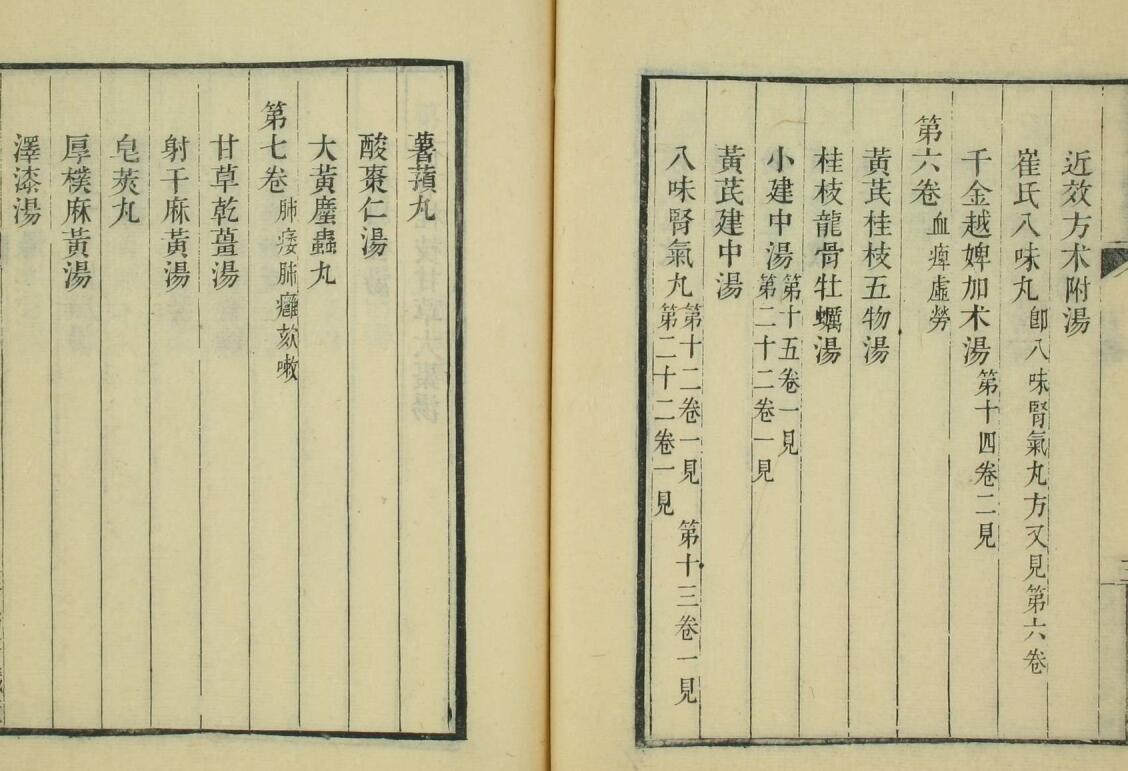 近效方术附湯
崔氏八味丸即八味腎氣丸方又見第六卷
千金越婢加术湯第十四卷二見
第六卷血痺虛勞
黃芪桂枝五物湯
桂枝龍骨牡蠣湯
小建中湯第十五卷一見第二十二卷一見
黃芪建中湯
八味腎氣丸第十二卷一見 第十三卷一見第二十二卷一見
薯蕷丸
酸棗仁湯
大黃䗪蟲丸
第七卷肺痿肺癰欬嗽
甘草乾薑湯
射干麻黃湯
皂莢丸
厚樸麻黃湯
澤漆湯